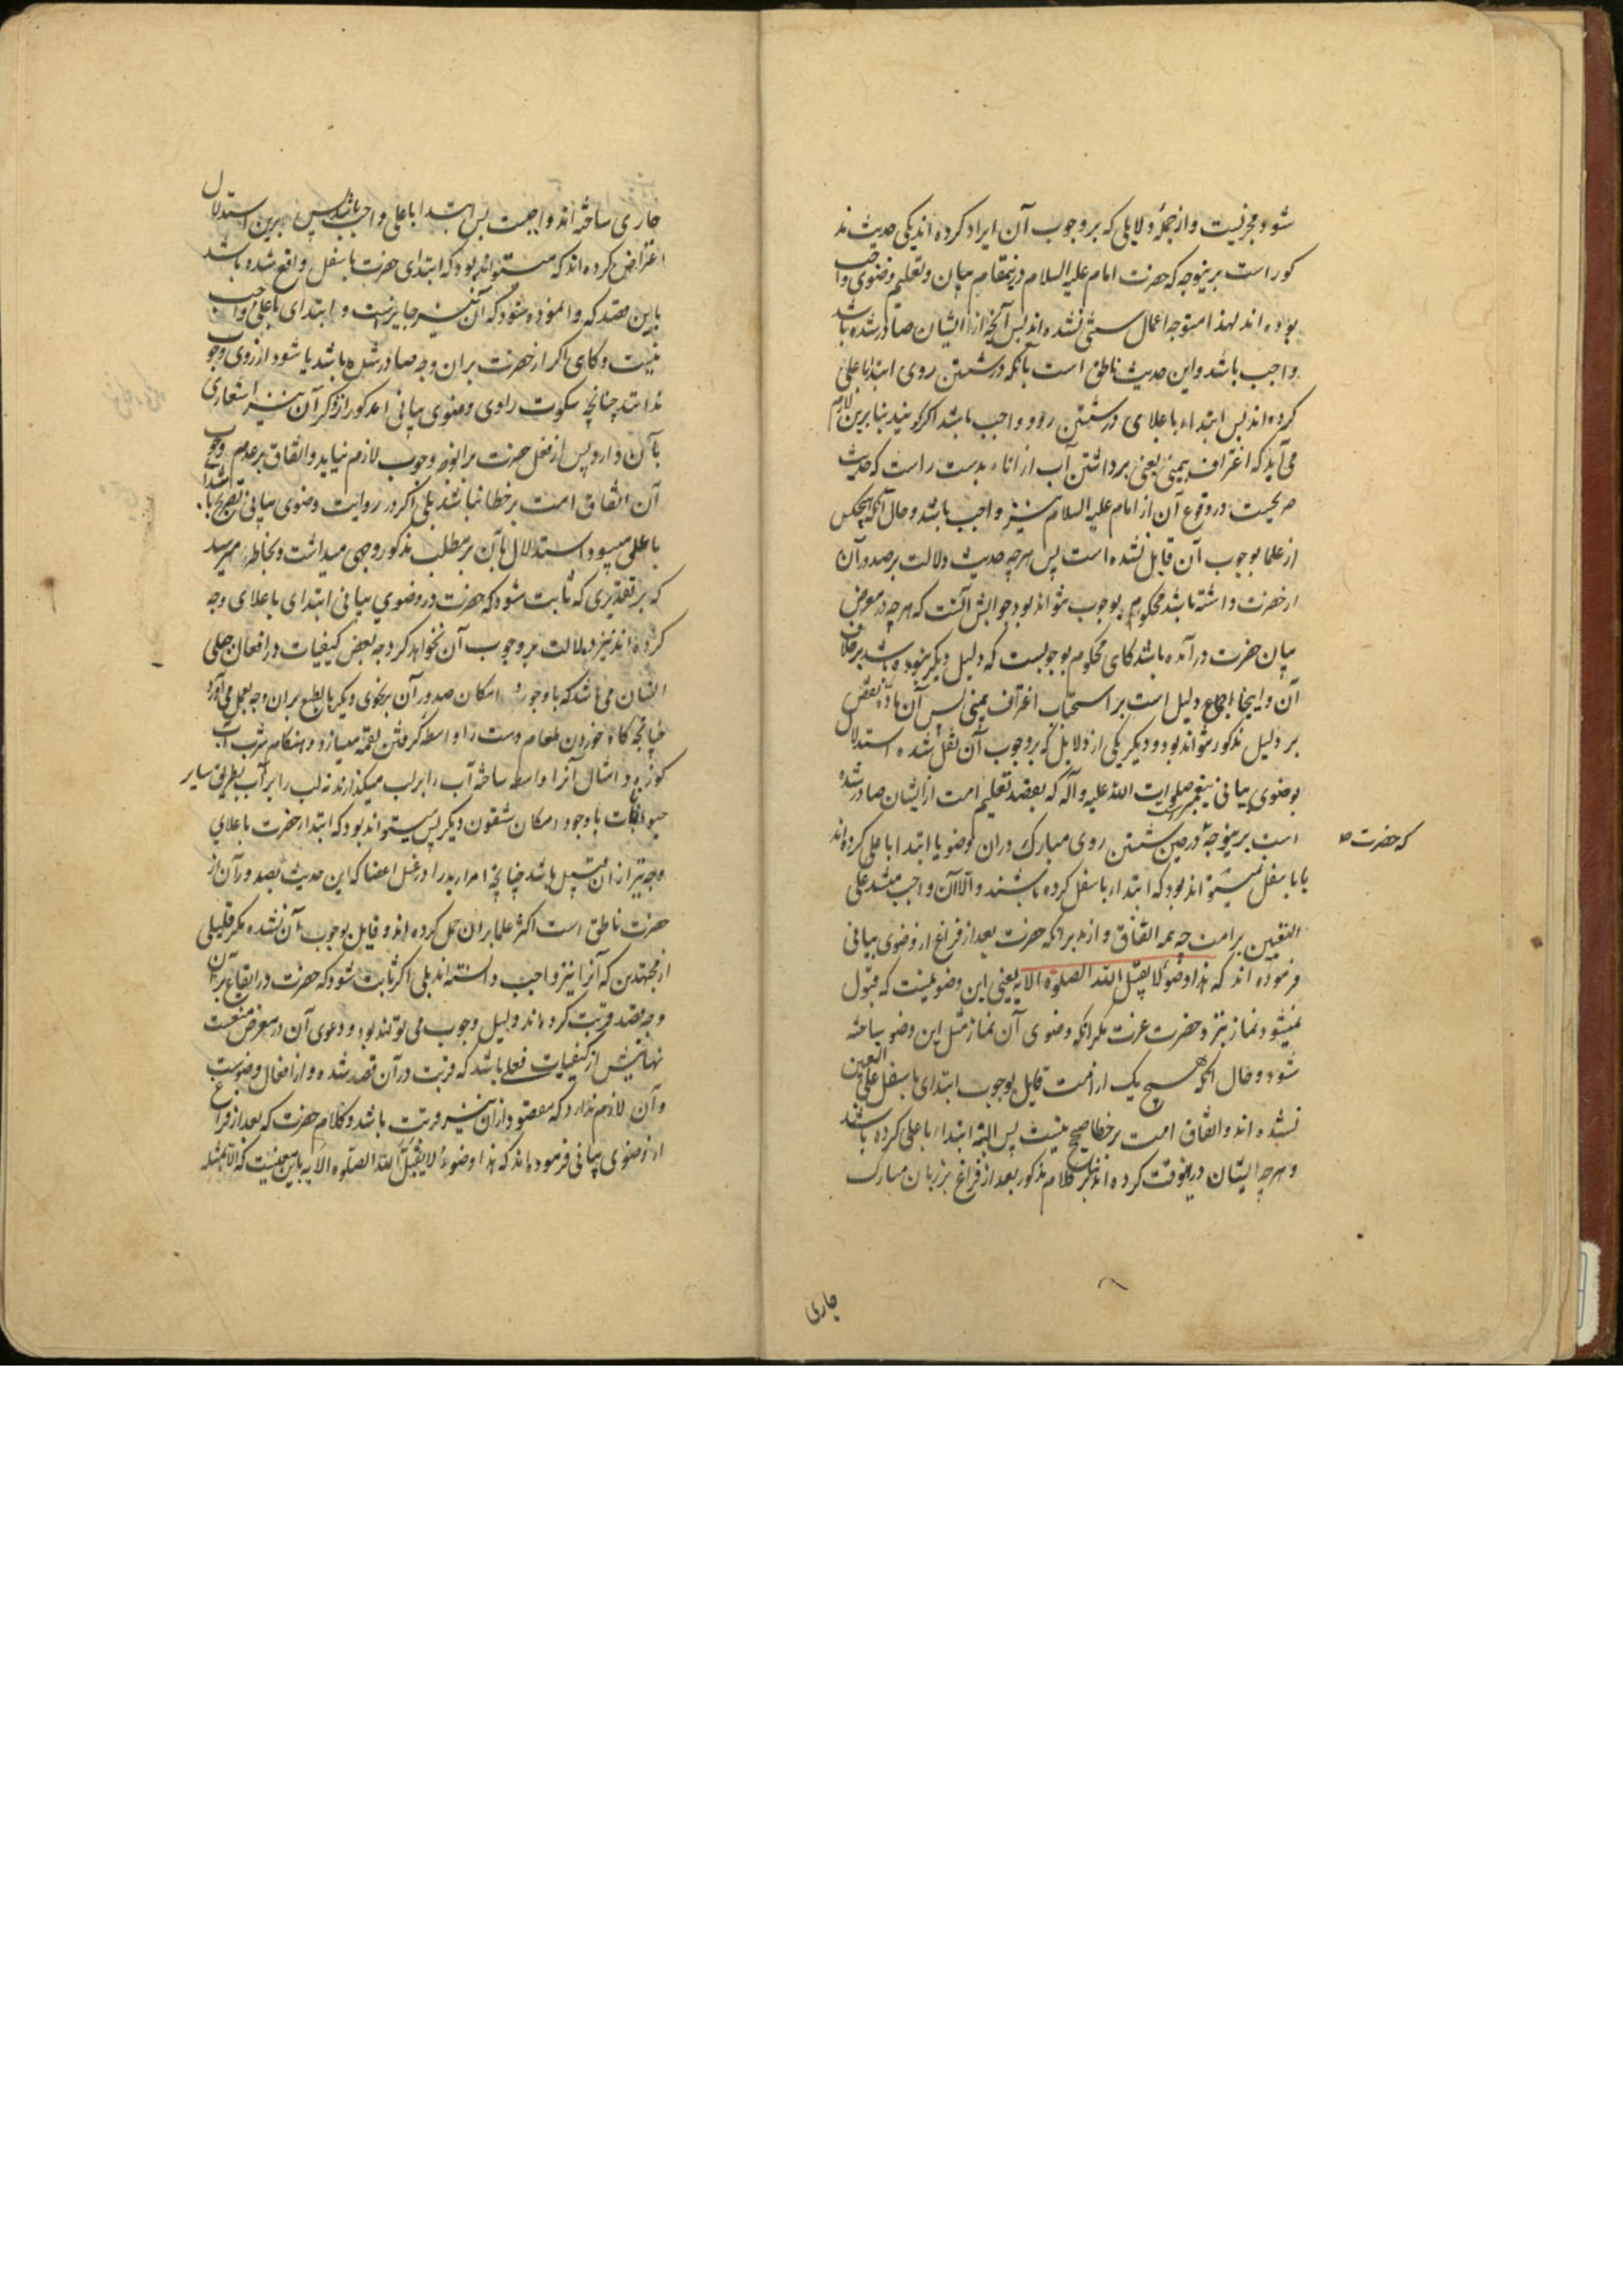 شود و مجزیست و از جملهٔ دلایلی که بر وجوب آن ایراد کرده اند یکی حدیث مذ
کور است برینوجه که حضرت امام علیه السلام در ینمقام بیان و تعلیم وضوی واجب
بوده اند لهذا متوجه اعمال سنتی نشده اند پس آنچه از ایشان صادر شده باشد
واجب باشد و این حدیث ناطق است بآنکه در شستن روی ابتدا باعلی
کرده اند پس ابتداء باعلای در شستن رو واجب باشد اگر گویند بنابرین لازم
می آید که اغتراف بیمنی یعنی برداشتن آب از اناء بدست راست که حدیث
صریحست در وقوع آن از امام علیه السلام نیز واجب باشد و حال آنکه هیچکس
از علما بوجوب آن قایل نشده است پس هرچه حدیث دلالت بر صدور آن
از حضرت داشته باشد محکوم بوجوب نتواند بود جوابش آنست که هرچه در معرض
بیان حضرت در آمده باشد گاهی محکوم بوجوبست که دلیل دیگر نبوده باشد بر خلاف
آن و اینجا اجماع دلیل است بر استحباب اغتراف بیمنی پس آن مادهٔ نقض
بر دلیل مذکور نتواند بود و دیگر یکی از دلایل که بر وجوب آن نقل شده استدلال
بوضوی بیانی پیغمبر صلوات الله علیه و آله که بقصد تعلیم امت از ایشان صادر شده
است برینوجه که حضرت ص در حین شستن روی مبارک در آن وضو یا ابتدا باعلی کرده اند
یا باسفل نمیتواند بود که ابتداء باسفل کرده باشند و الا آن واجب میشد علی
التعیین بر امت چه بهمه اتفاق وارد بر آنکه حضرت بعد از فراغ از وضوی بیانی
فرموده اند که هذا وضوء لا یقبل الله الصلوة الا به یعنی این وضوئیست که قبول
نمیشود نماز نزد حضرت عزت مگر آنکه وضوی آن نماز مثل این وضو ساخته
شود و حال آنکه هیچ یک از امت قایل بوجوب ابتدای باسفل علی التعیین
نشده اند و اتفاق امت بر خطا صحیح نیست پس البته ابتداء باعلی کرده باشند
و هرچه ایشان در آنوقت کرده اند بنابر کلام مذکور بعد از فراغ بر زبان مبارک
جاری
جاری ساخته اند واجبست پس ابتدا باعلی واجب باشد پس برین استدلال
اعتراض کرده اند که میتواند بود که ابتدای حضرت باسفل واقع شده باشد
باین قصد که وانموده شود که آن نیز جایز است و ابتدای باعلی واجب
نیست و گاهی اگر از حضرت بر آن وجه صادر شده باشد یا شود از روی وجوب
ندانند چنانچه سکوت راوی وضوی بیانی مذکور از ذکر آن نیز اشعاری
بآن دارد پس از فعل حضرت بر آنوجه وجوب لازم نیاید و اتفاق بر عدم وجوب
آن اتفاق امت بر خطا نباشد بلی اگر در روایت وضوی بیانی تصریح بابتدا
باعلی میبود استدلال بآن بر مطلب مذکور وجهی میداشت و بخاطر میرسد
که بر تقدیری که ثابت شود که حضرت در وضوی بیانی ابتدای باعلای وجه
کرده اند نیز دلالت بر وجوب آن نخواهد کرد چه بعض کیفیات در افعال جبلی
انسان می باشد که با وجود امکان صدور آن بر نحوی دیگر بالطبع بر آن وجه بعمل می آورد
چنانچه گاه خوردن طعام دست را واسطه گرفتن لقمه میسازد و هنگام شرب آب
کوزه و امثال آنرا واسطه ساخته آب را بر لب میگذارند نه لب را بر آب بطریق سایر
حیوانات با وجود امکان شقوق دیگر پس میتواند بود که ابتدا حضرت باعلای
وجه نیز از آن قبیل باشد چنانچه امرار ید را در غسل اعضا که این حدیث بصدور آن از
حضرت ناطق است اکثر علما بر آن حمل کرده اند و قایل بوجوب آن نشده مگر قلیلی
از مجتهدین که آنرا نیز واجب دانسته اند بلی اگر ثابت شود که حضرت در ایقاع بر آن
وجه قصد قربت کرده اند دلیل وجوب می تواند بود و دعوی آن در معرض منعست
نهایتش از کیفیات فعلی باشد که قربت در آن قصد شده و از افعال وضوست
و آن لازم ندارد که مقصود از آن نیز قربت باشد و کلام حضرت که بعد از فراغ
از وضوی بیانی فرموده اند که هذا وضوء لا یقبل الله الصلوة الا به باین معنیست که الا بمثله